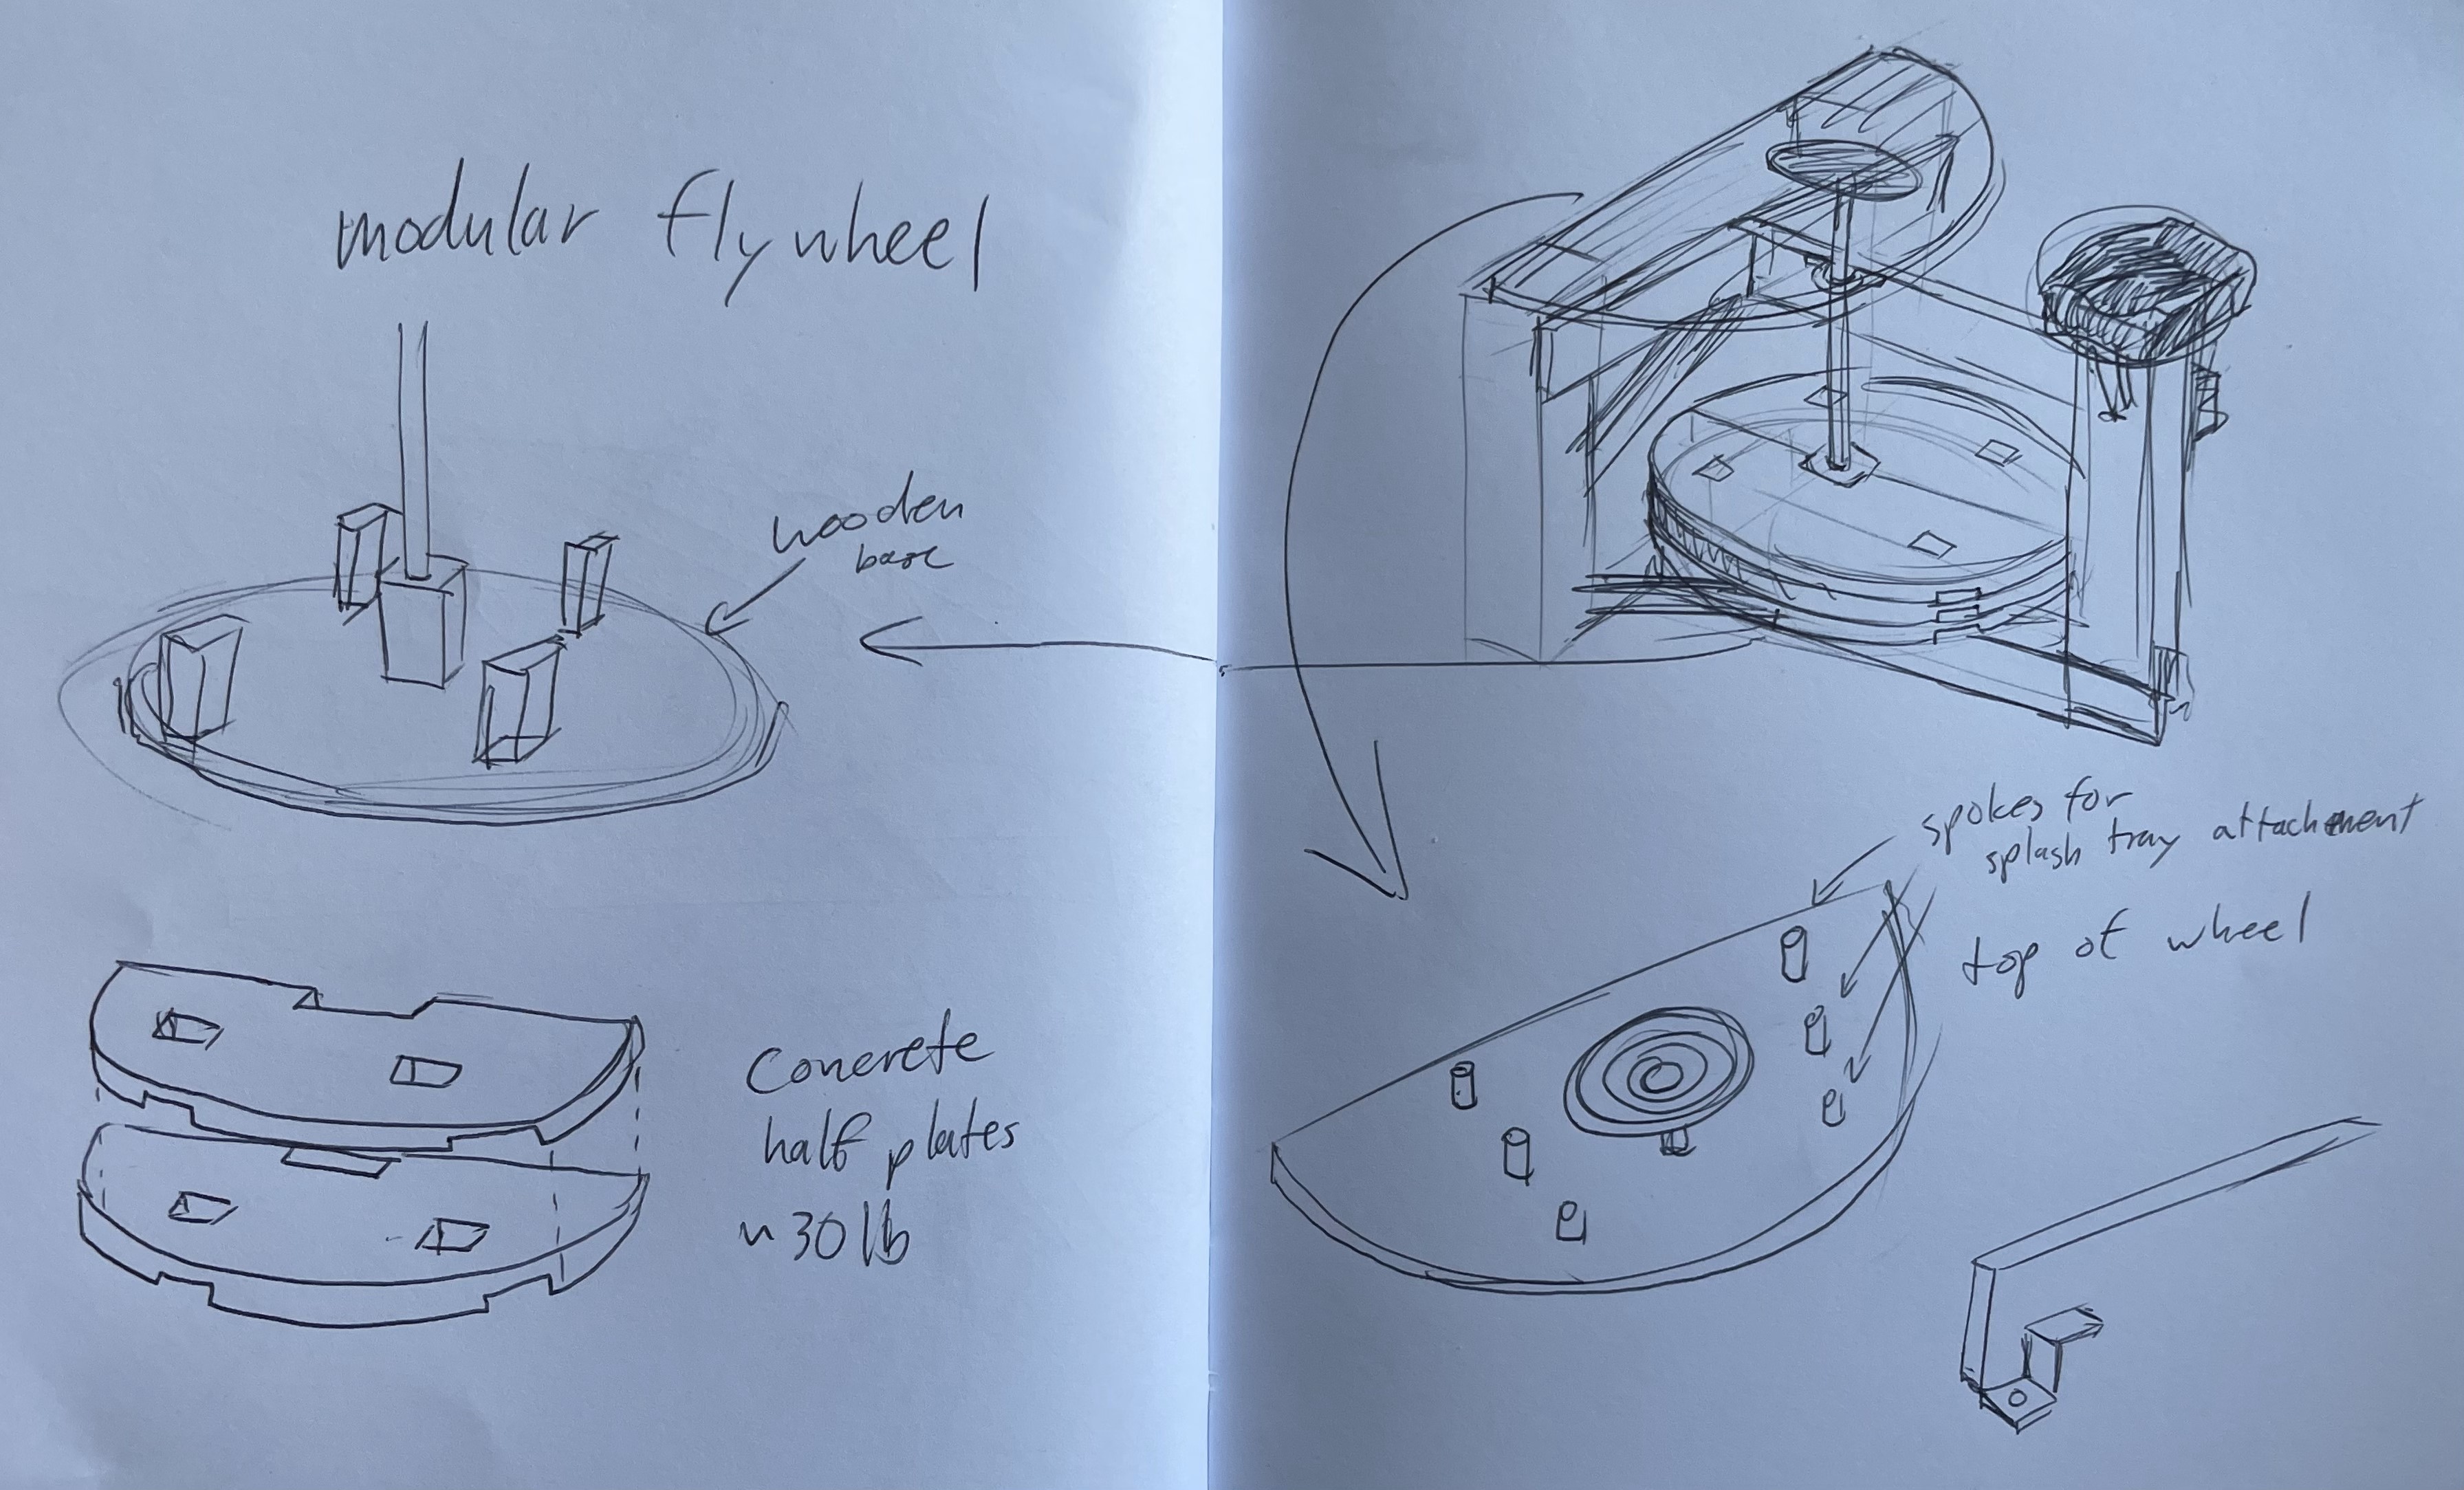 modular flywheel
wooden
base
Concrete
half plates
~30lb
spokes for
splash tray attachment
top of wheel